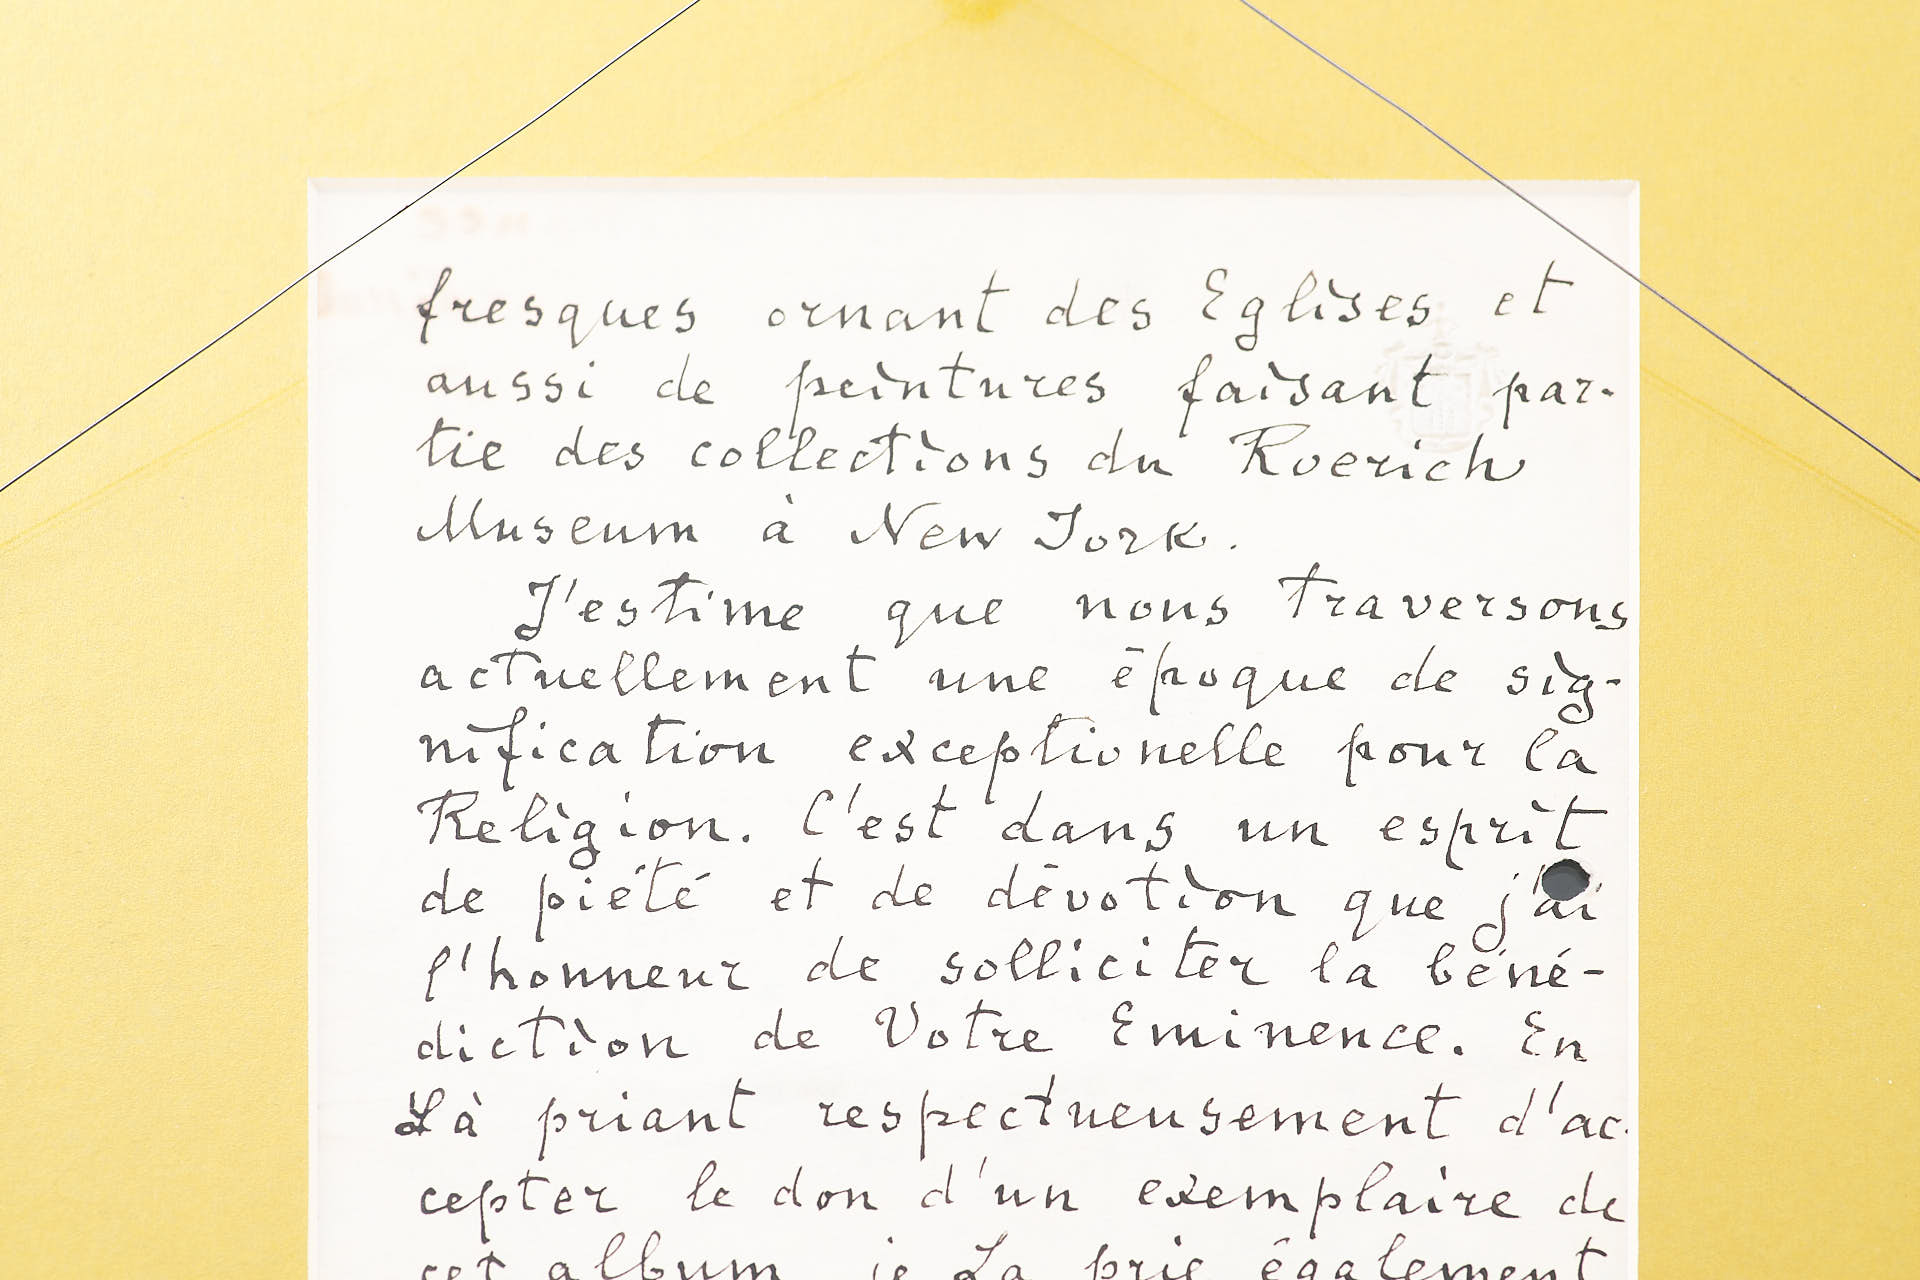 fresques ornant des Eglises et
aussi de peintures faisant par-
tie des collections du Roerich
Museum à New York.
J'estime que nous traversons
actuellement une époque de sig-
nification exceptionelle pour la
Religion. C'est dans un esprit
de piété et de dévotion que j'ai
l'honneur de solliciter la béné-
diction de Votre Eminence. En
Là priant respectueusement d'ac-
cepter le don d'un exemplaire de
cet album je La prie également